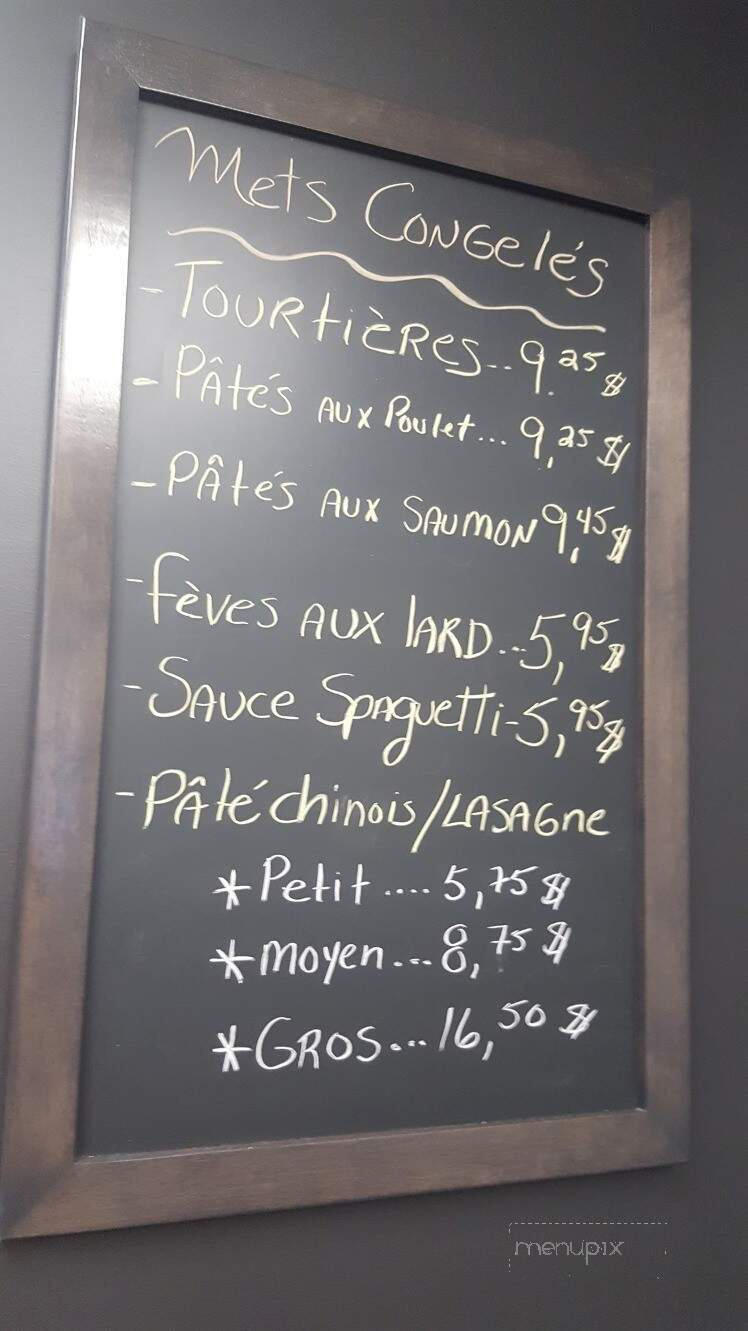 Mets Congelés
- Tourtières.. 9.25$
- Pâtés aux Poulet... 9,25$
- Pâtés aux Saumon 9,45$
- Fèves aux lard... 5,95$
- Sauce Spaguetti - 5,95$
- Pâté chinois/LASAGne
* Petit .... 5,75$
* moyen.... 8,75$
* GROS... 16,50$
menupix